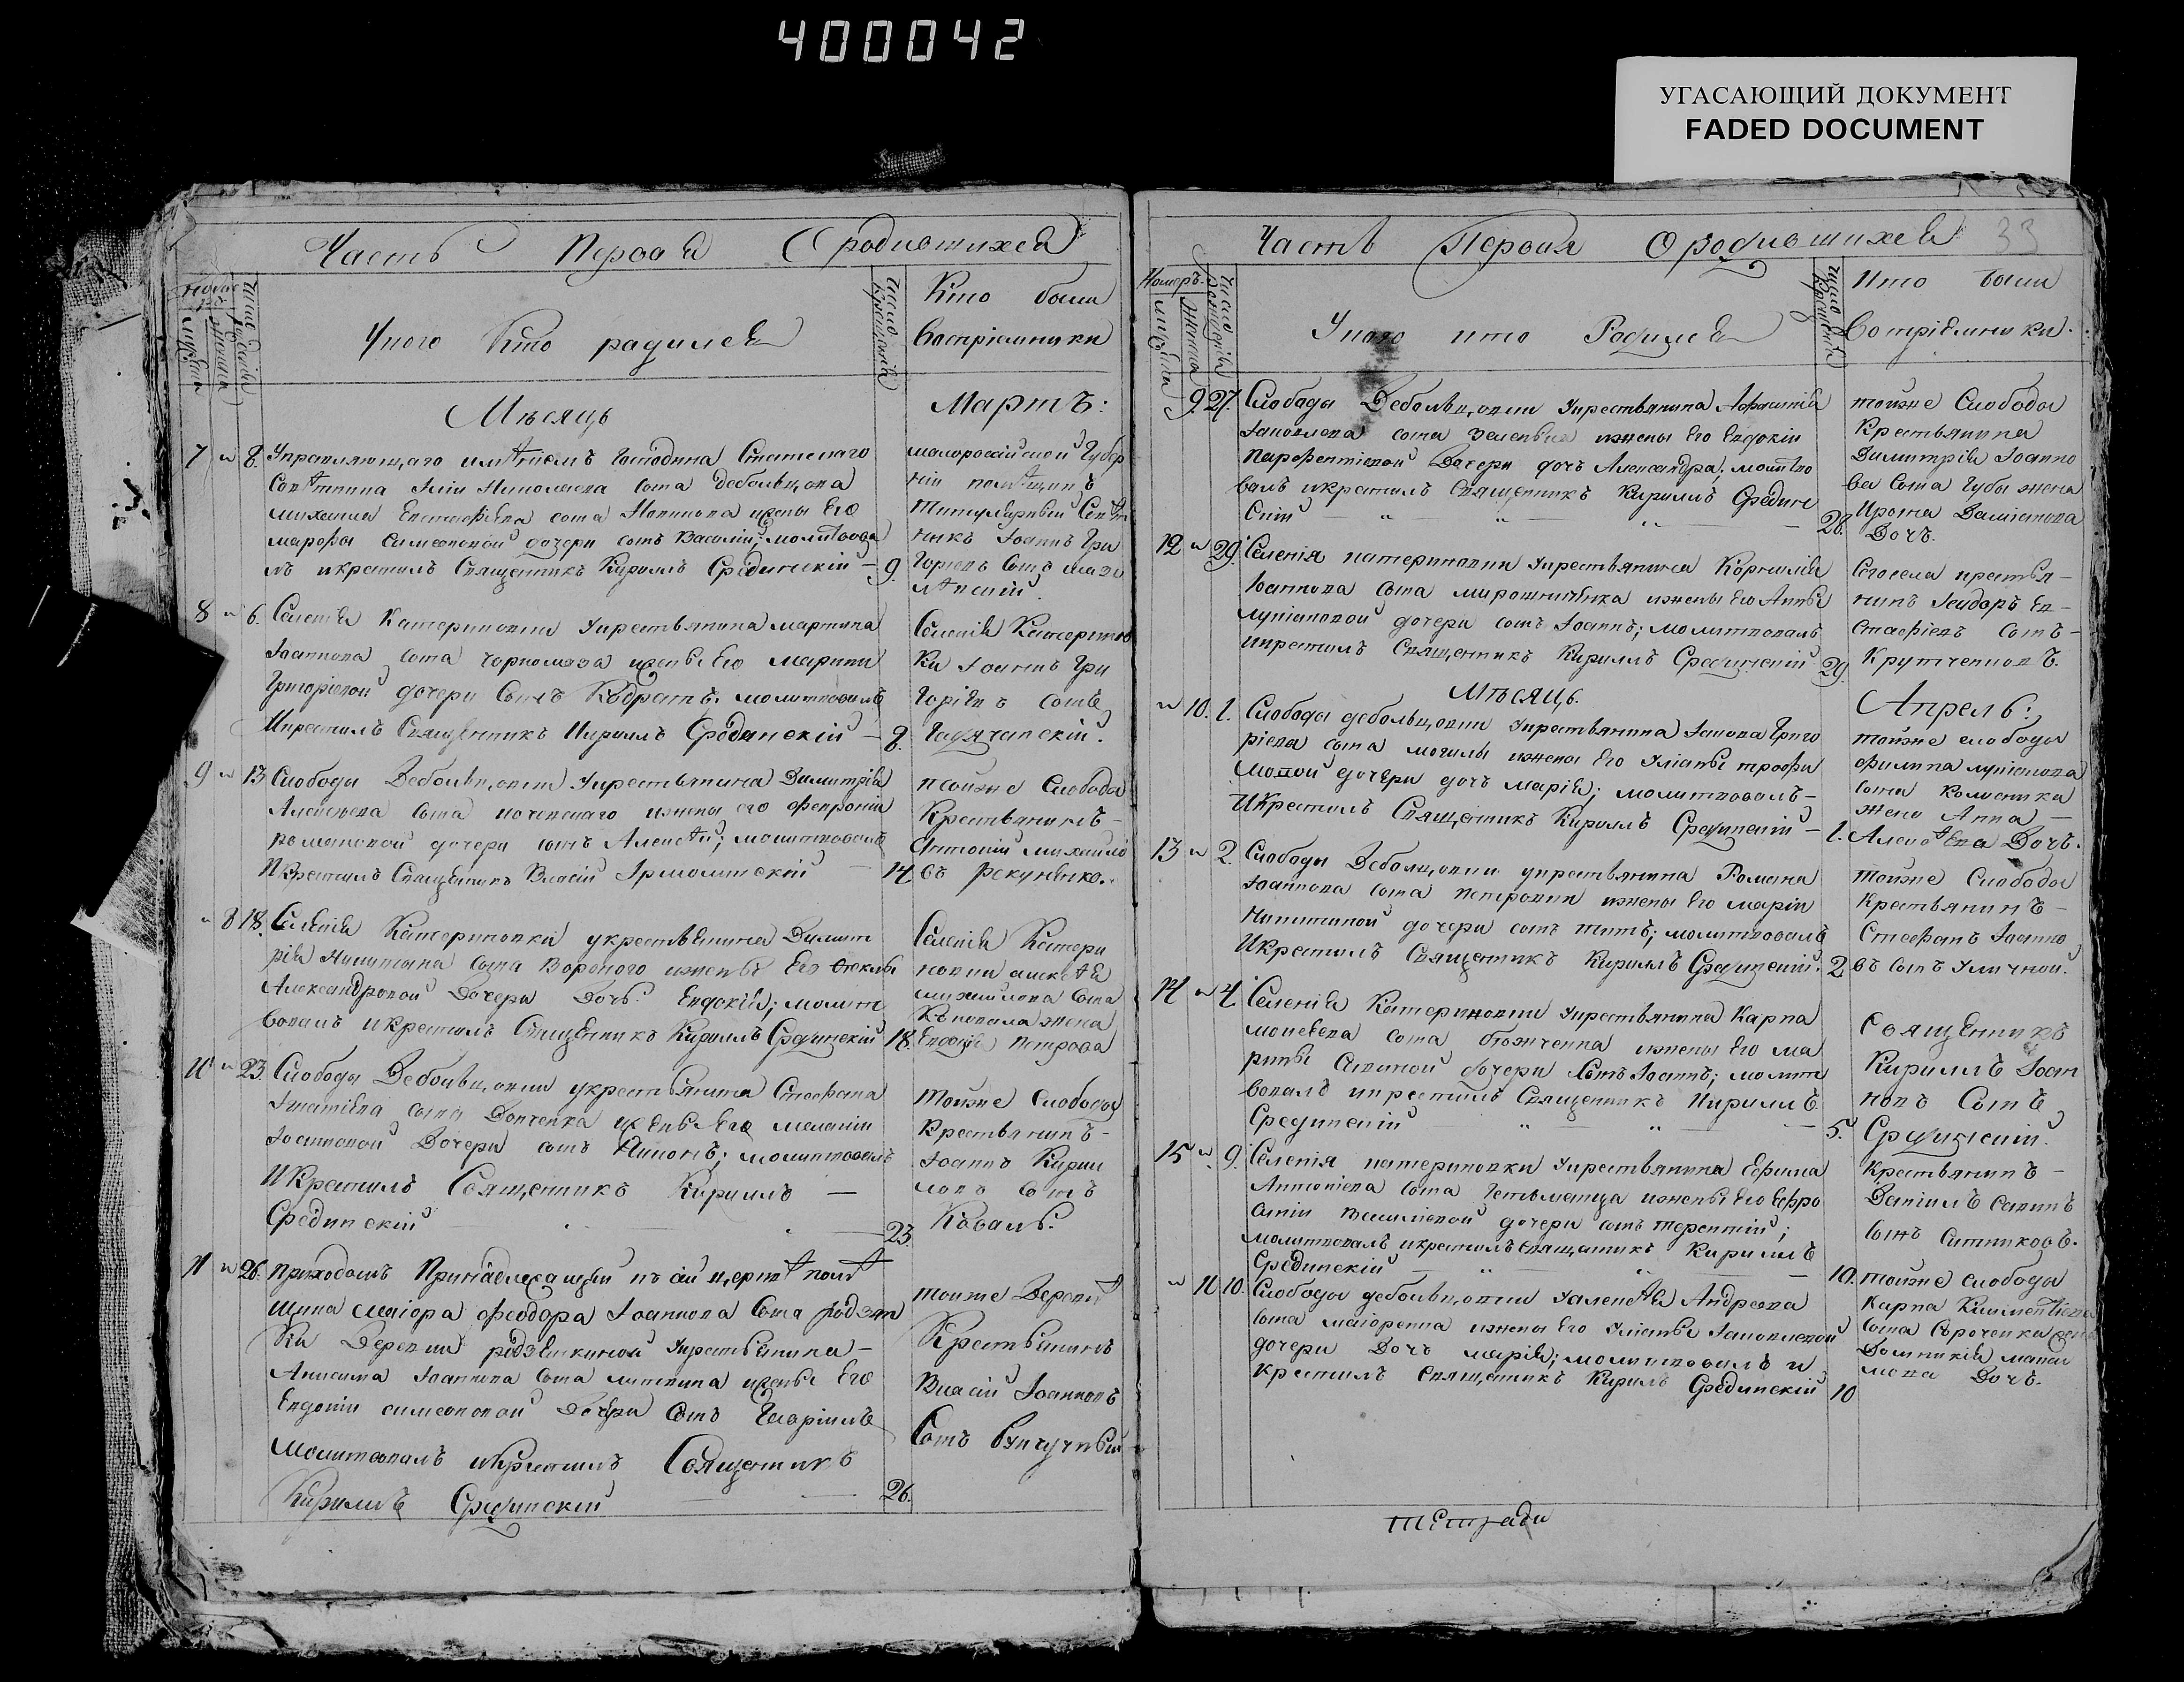 400042
УГАСАЮЩИЙ ДОКУМЕНТ
FADED DOCUMENT
Часть Первая О родившихся
Число рожденія
Число крещенія
Кто были
Восприемники
У кого кто родился
Мѣсяцъ
Мартъ:
7 " 8. Управляющаго имѣніемъ Господина Статскаго
Совѣтника Иліи Николаева сына Дебольцова
михаила Евстафіева сына женъ Его
марфы Симеоновой дочери сынъ Василій; молитвова
лъ икрестилъ Священникъ Кириллъ Срединскій — 9.
малороссійской Губер
ніи помѣщикъ
Титулярный Совѣт
никъ Іоаннъ Гри
горіевъ Сынъ
8 " 6. Селенія Катериновки укрестьянина мартина
Іоаннова сына чорномаза жены Его марины
Григоріевой дочери Сынъ Кодратъ. молитвовалъ
Икрестилъ Священникъ Кириллъ Срединскій — 8.
Селенія Катеринов
ки Іоаннъ Гри
горіевъ сынъ
9 " 13 Слободы Дебольцовки укрестьянина Димитрія
Алексѣева сына ижены его февроніи
романовой дочери сынъ Алексѣй; молитвовалъ
Икрестилъ Священникъ Власій Ярмолинскій — 14
тойже Слободы
Крестьянинъ —
Антоній михайло
въ рекуненко.
" 8 18. Селенія Катериновки укрестьянина Димит
рія Никитина сына Вороного ижены Его Феклы
Александровой Дочери Дочь Евдокія; молит
вовалъ икрестилъ Священникъ Кириллъ Срединскій 18.
Селенія Катери
новки алексѣя
михайлова сына
Коновала жена
Евдокія петрова
10 " 23. Слободы Дебольцовки укрестьянина Стефана
Игнатіева сына Донченка ижены Его меланіи
Іоанновой Дочери сынъ Никонъ; молитвовалъ
Икрестилъ Священникъ Кириллъ —
Срединскій — 23.
тойже Слободы
Крестьянинъ —
Іоаннъ Кирил
ловъ сынъ
Коваль.
11 " 26. приходомъ Принадлежащій къ сей церкви помѣ
щика маіора феодора Іоаннова сына
ки Деревни укрестьянина —
Анисима Іоаннова сына литвина жены Его
Евдокіи симеоновой Дочери Сынъ Гавріилъ
молитвовалъ икрестилъ Священникъ
Кириллъ Срединскій — 26.
тойже Деревни
Крестьянинъ
Власій Іоанновъ
Сынъ
Часть Первая О родившихся 33
Номеръ.
Число рожденія
У кого кто Родился
Число крещенія
Кто были
Воспріемники.
9. 27. Слободы Дебольцовки укрестьянина Афанасія
Іаковлева сына зеленька ижены Его Евдокіи
Парфентіевой Дочери дочь Александра; молитво
валъ икрестилъ Священникъ Кириллъ Средин
скій — 28.
тойже Слободы
Крестьянина
Димитрія Іоанно
ва Сына Губы жена
Ирина Даміанова
Дочь.
12 " 29. Селенія катериновки укрестьянина Корнилія
Іоаннова сына мирошниченка ижены Его Анны
Лукіановой дочери сынъ Іоаннъ; молитвовалъ
икрестилъ Священникъ Кириллъ Срединскій 29.
Сегосела крестья —
нинъ Ісидоръ Ев —
стафіевъ сынъ —
Крутченковъ.
Мѣсяцъ.
Апрель:
" 10. 1. Слободы дебольцовки укрестьянина Іакова Григо
ріева сына могилы ижены Его Уліаны трофи
мовой дочери дочь марія; молитвовалъ —
Икрестилъ Священникъ Кириллъ Срединскій — 1.
тойже слободы
филипа лукіанова
сына
жена Анна —
Алексѣева Дочь.
13 " 2. Слободы Дебольцовки укрестьянина Романа
Іоаннова сына петровки ижены Его маріи
Никитиной дочери сынъ титъ; молитвовалъ
Икрестилъ Священникъ Кириллъ Срединскій. 2
тойже Слободы
крестьянинъ —
Стефанъ Іоанно
въ сынъ Уличной.
14 " 4. Селенія Катериновки укрестьянина Карпа
моисеева сына ижены Его ма
рины Савиной дочери Сынъ Іоаннъ; молит
вовалъ икрестилъ Священникъ Кириллъ
Срединскій — 5.
Священникъ
Кириллъ Іоан
новъ Сынъ
Срединскій.
15 " 9. Селенія катериновки укрестьянина Ефима
Антоніева сына Гетьманца ижены Его Евфро
синіи василіевой дочери сынъ терентій;
молитвовалъ икрестилъ священникъ Кириллъ
Срединскій — 10.
крестьянинъ —
Даніилъ савинъ
сынъ Ситниковъ.
" 11 10. Слободы дебольцовки Уалексѣя Андреева
сына маіоренка ижены Его Уліаны Іаковлевой
дочери Дочь марія; молитвовалъ и
крестилъ Священникъ Кириллъ Срединскій 10
тойже слободы
карпа Климентіева
сына Сороченка жена
Домникія
Дочь.